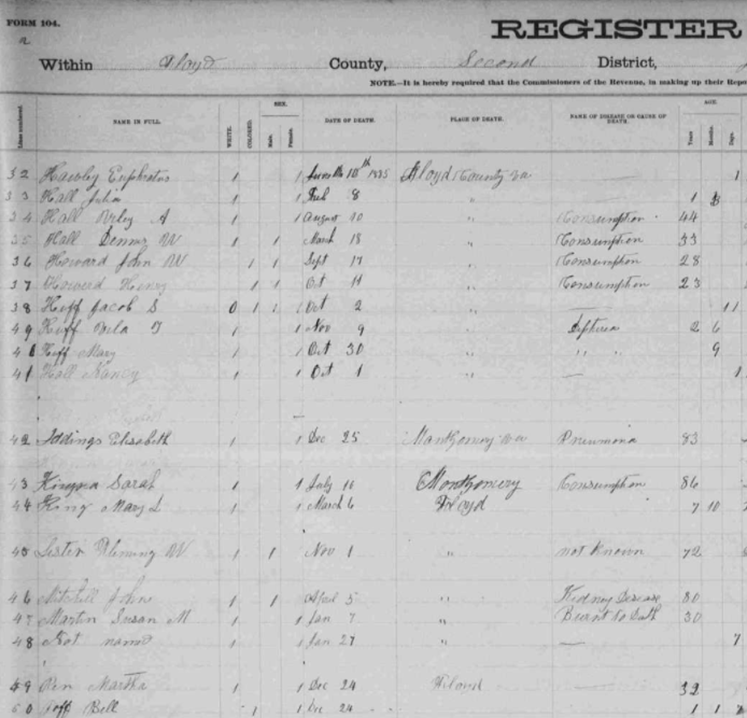 FORM 104.
REGISTER
Within Floyd County, Second District,
NOTE.—It is hereby required that the Commissioners of the Revenue, in making up their Repo
Lines numbered. NAME IN FULL. WHITE. COLORED. SEX. Male. Female. DATE OF DEATH. PLACE OF DEATH. NAME OF DISEASE OR CAUSE OF DEATH. AGE. Years Months Days.
32 Hawley 1 1 10th Floyd County Va — 1
33 Hall Julia 1 1 Feb 8 " — 1
34 Hall A 1 1 August 10 " Consumption 44
35 Hall W 1 1 March 18 " Consumption 33
36 Howard John W 1 1 Sept 17 " Consumption 28
37 Howard Henry 1 1 Oct 11 " Consumption 23
38 Huff Jacob S 0 1 1 Oct 2 " — 11
Huff 1 1 Nov 9 " 2 6
Huff Mary 1 1 Oct 30 " " " 9
41 Hall Nancy 1 1 Oct 1 " — 1
42 Iddings Elisabeth 1 1 Dec 25 Montgomery Pneumona 83
43 Sarah 1 1 July 16 Montgomery Consumption 86
44 King Mary L 1 1 March 6 Floyd 7 10
45 Lester Fleming W 1 1 Nov 1 " not Known 72
46 Mitchell John 1 1 April 5 " Kidney Disease 80
47 Martin Susan M 1 1 Jan 7 " Burnt to Death 30
48 Not named 1 1 Jan 27 " — 7
49 Martha 1 1 Dec 24 Floyd — 32
50 Goff Bell 1 1 Dec 24 1 1